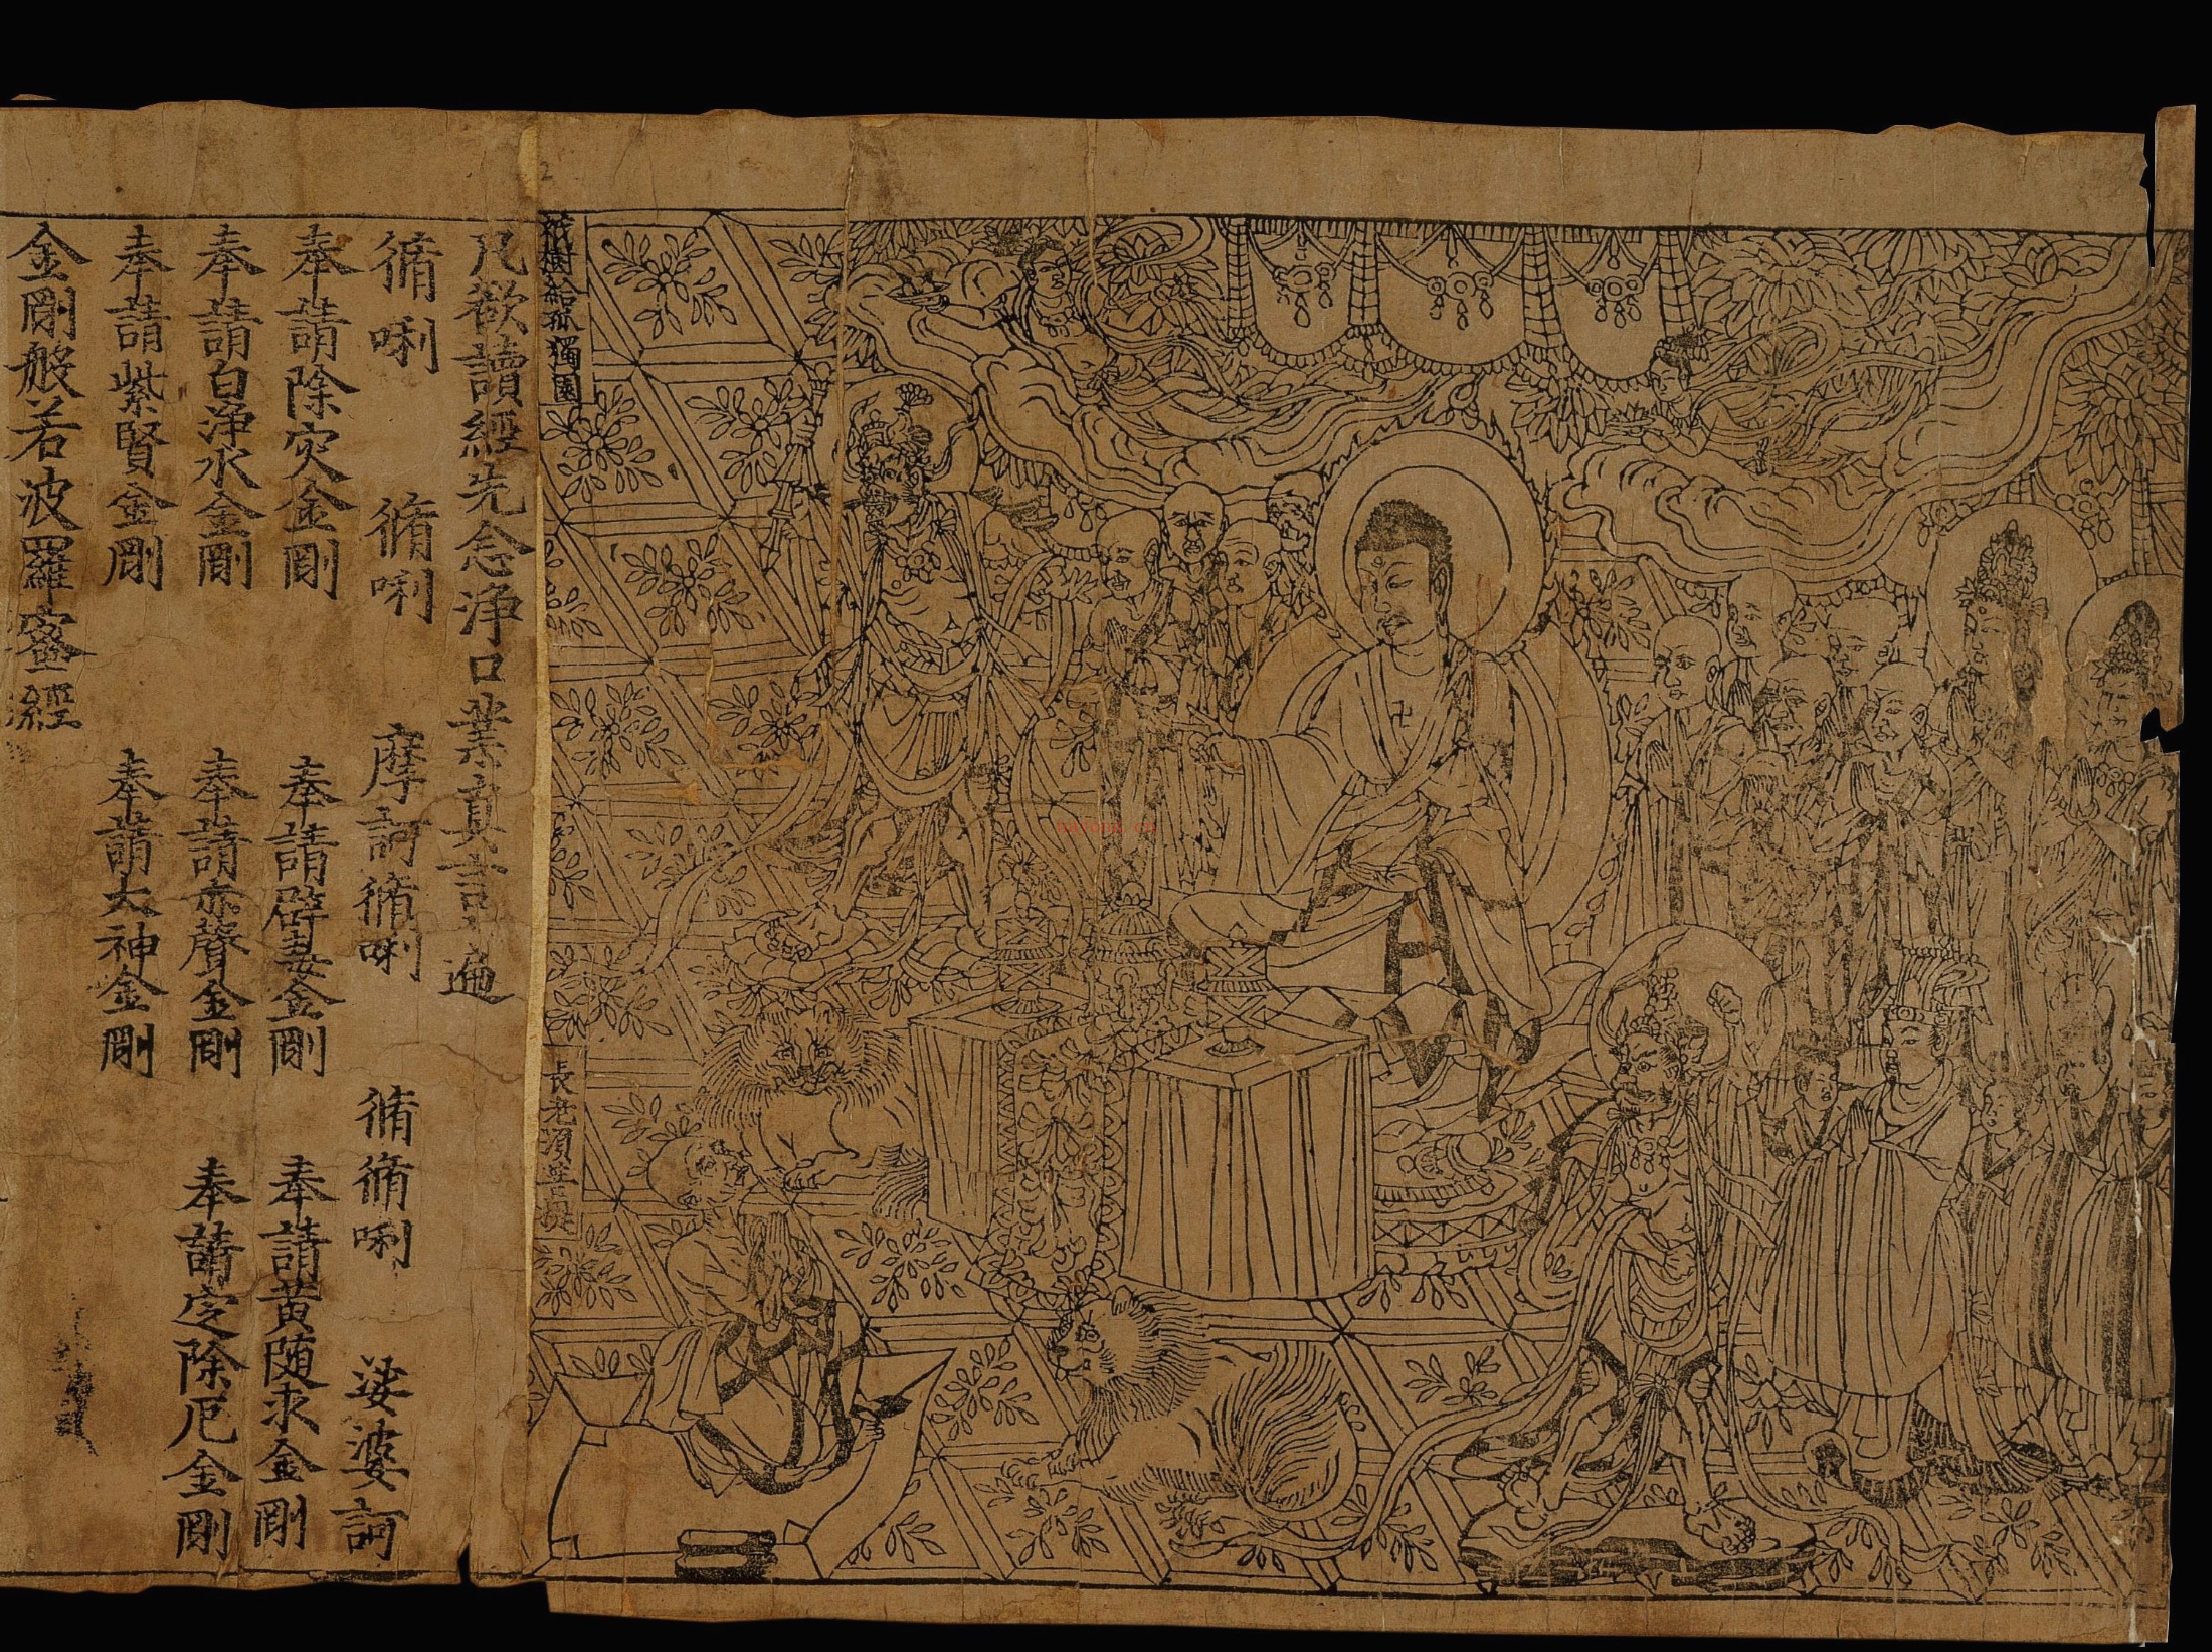 祇樹給孤獨園
長老須菩提
凡欲讀經先念浄口業真言遍
脩唎 脩唎 摩訶脩唎 脩脩唎 娑婆訶
奉請除灾金剛 奉請辟毒金剛 奉請黃随求金剛
奉請白浄水金剛 奉請赤聲金剛 奉請定除厄金剛
奉請紫賢金剛 奉請大神金剛
金剛般若波羅蜜經